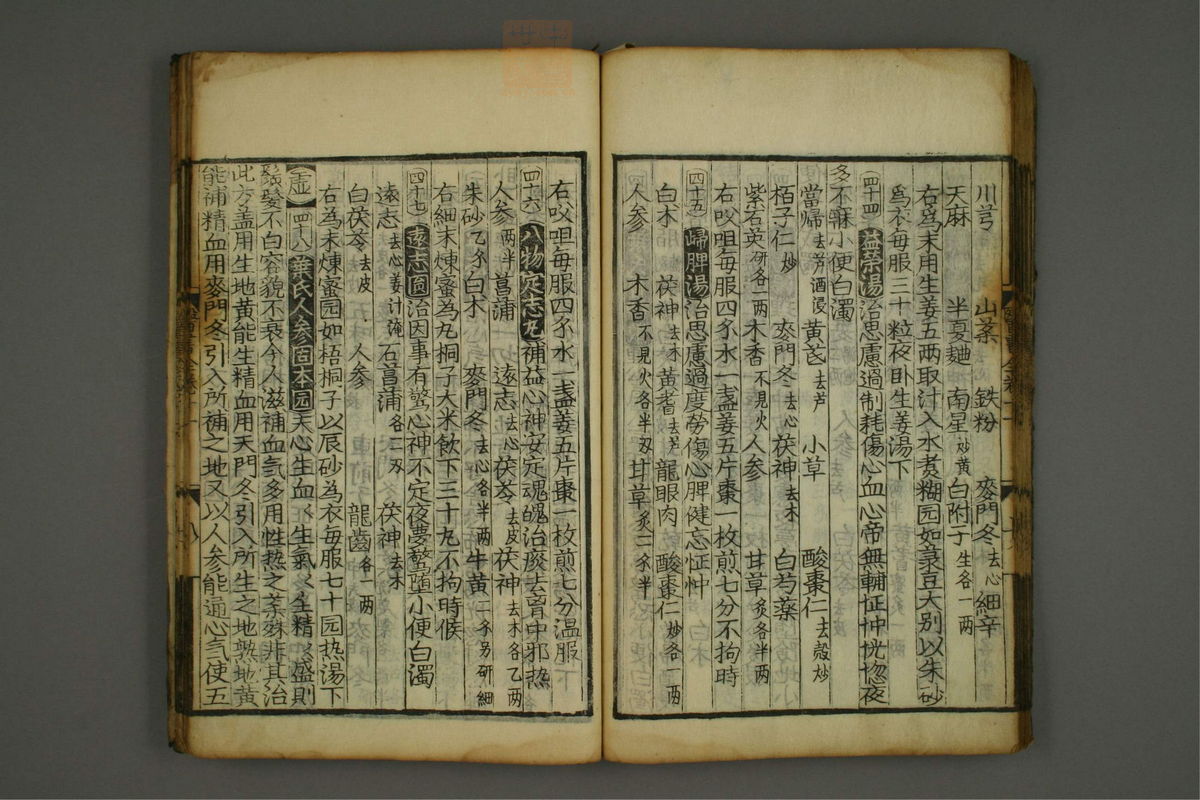 川芎 山茱 鉄粉 麥門冬去心 細辛
天麻 半夏麯 南星炒黄 白附子生各一两
右為末用生姜五两取汁入水煮糊园如彔豆大别以朱砂
爲衣每服三十粒夜卧生姜湯下
四十四 益荣湯 治思慮過制耗傷心血心帝無輔怔忡恍惚夜
多不寐小便白濁
當㱕去芦酒浸 黄芪去芦 小草 酸棗仁去殼炒
栢子仁炒 麥門冬去心 茯神去木 白芍薬
紫石英研各一两 木香不見火 人参 甘草炙各半两
右㕮咀每服四𠆤水一盏姜五片棗一枚煎七分不拘時
四十五 歸脾湯 治思慮過度勞傷心脾健忘怔忡
白木 茯神去木 黄耆去芦 龍眼肉 酸棗仁炒各一两
人参 木香不見火各半刄 甘草炙二𠆤半
右㕮咀每服四𠆤水一盏姜五片棗一枚煎七分温服
四十六 八物定志丸 補益心神安定魂魄治痰去胷中邪热
人参一两半 菖蒲 遠志去心 茯苓去皮 茯神去木各乙两
朱砂乙𠆤 白木 麥門冬去心各半两 牛黄二𠆤另研細
右細末煉蜜為丸桐子大米飲下三十丸不拘時候
四十七 遠志园 治因事有驚心神不定夜夢驚堕小便白濁
遠志去心姜汁淹 石菖蒲各二刄 茯神去木
白茯苓去皮 人参 龍齒各一两
右為末煉蜜园如梧桐子以辰砂為衣每服七十园热湯下
虚 四十八 葉氏人参固本园 夫心生血〻生氣〻生精〻盛則
鬚髮不白容貌不衰今人滋補血氣多用性热之薬殊非其治
此方盖用生地黄能生精血用天門冬引入所生之地熟地黄
能補精血用麥門冬引入所補之地又以人参能通心氣使五